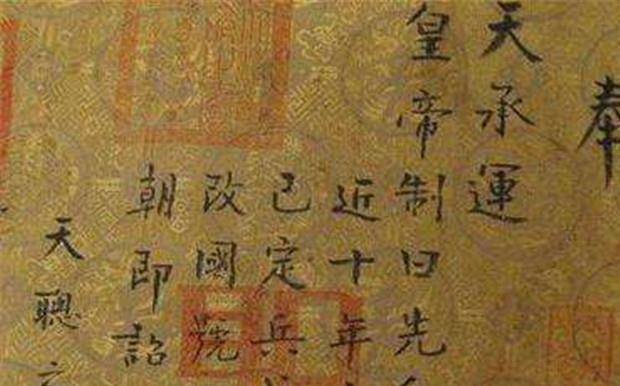 奉
天承運
皇帝制曰先
近十年
已定兵
改國號
朝即詔
天聰